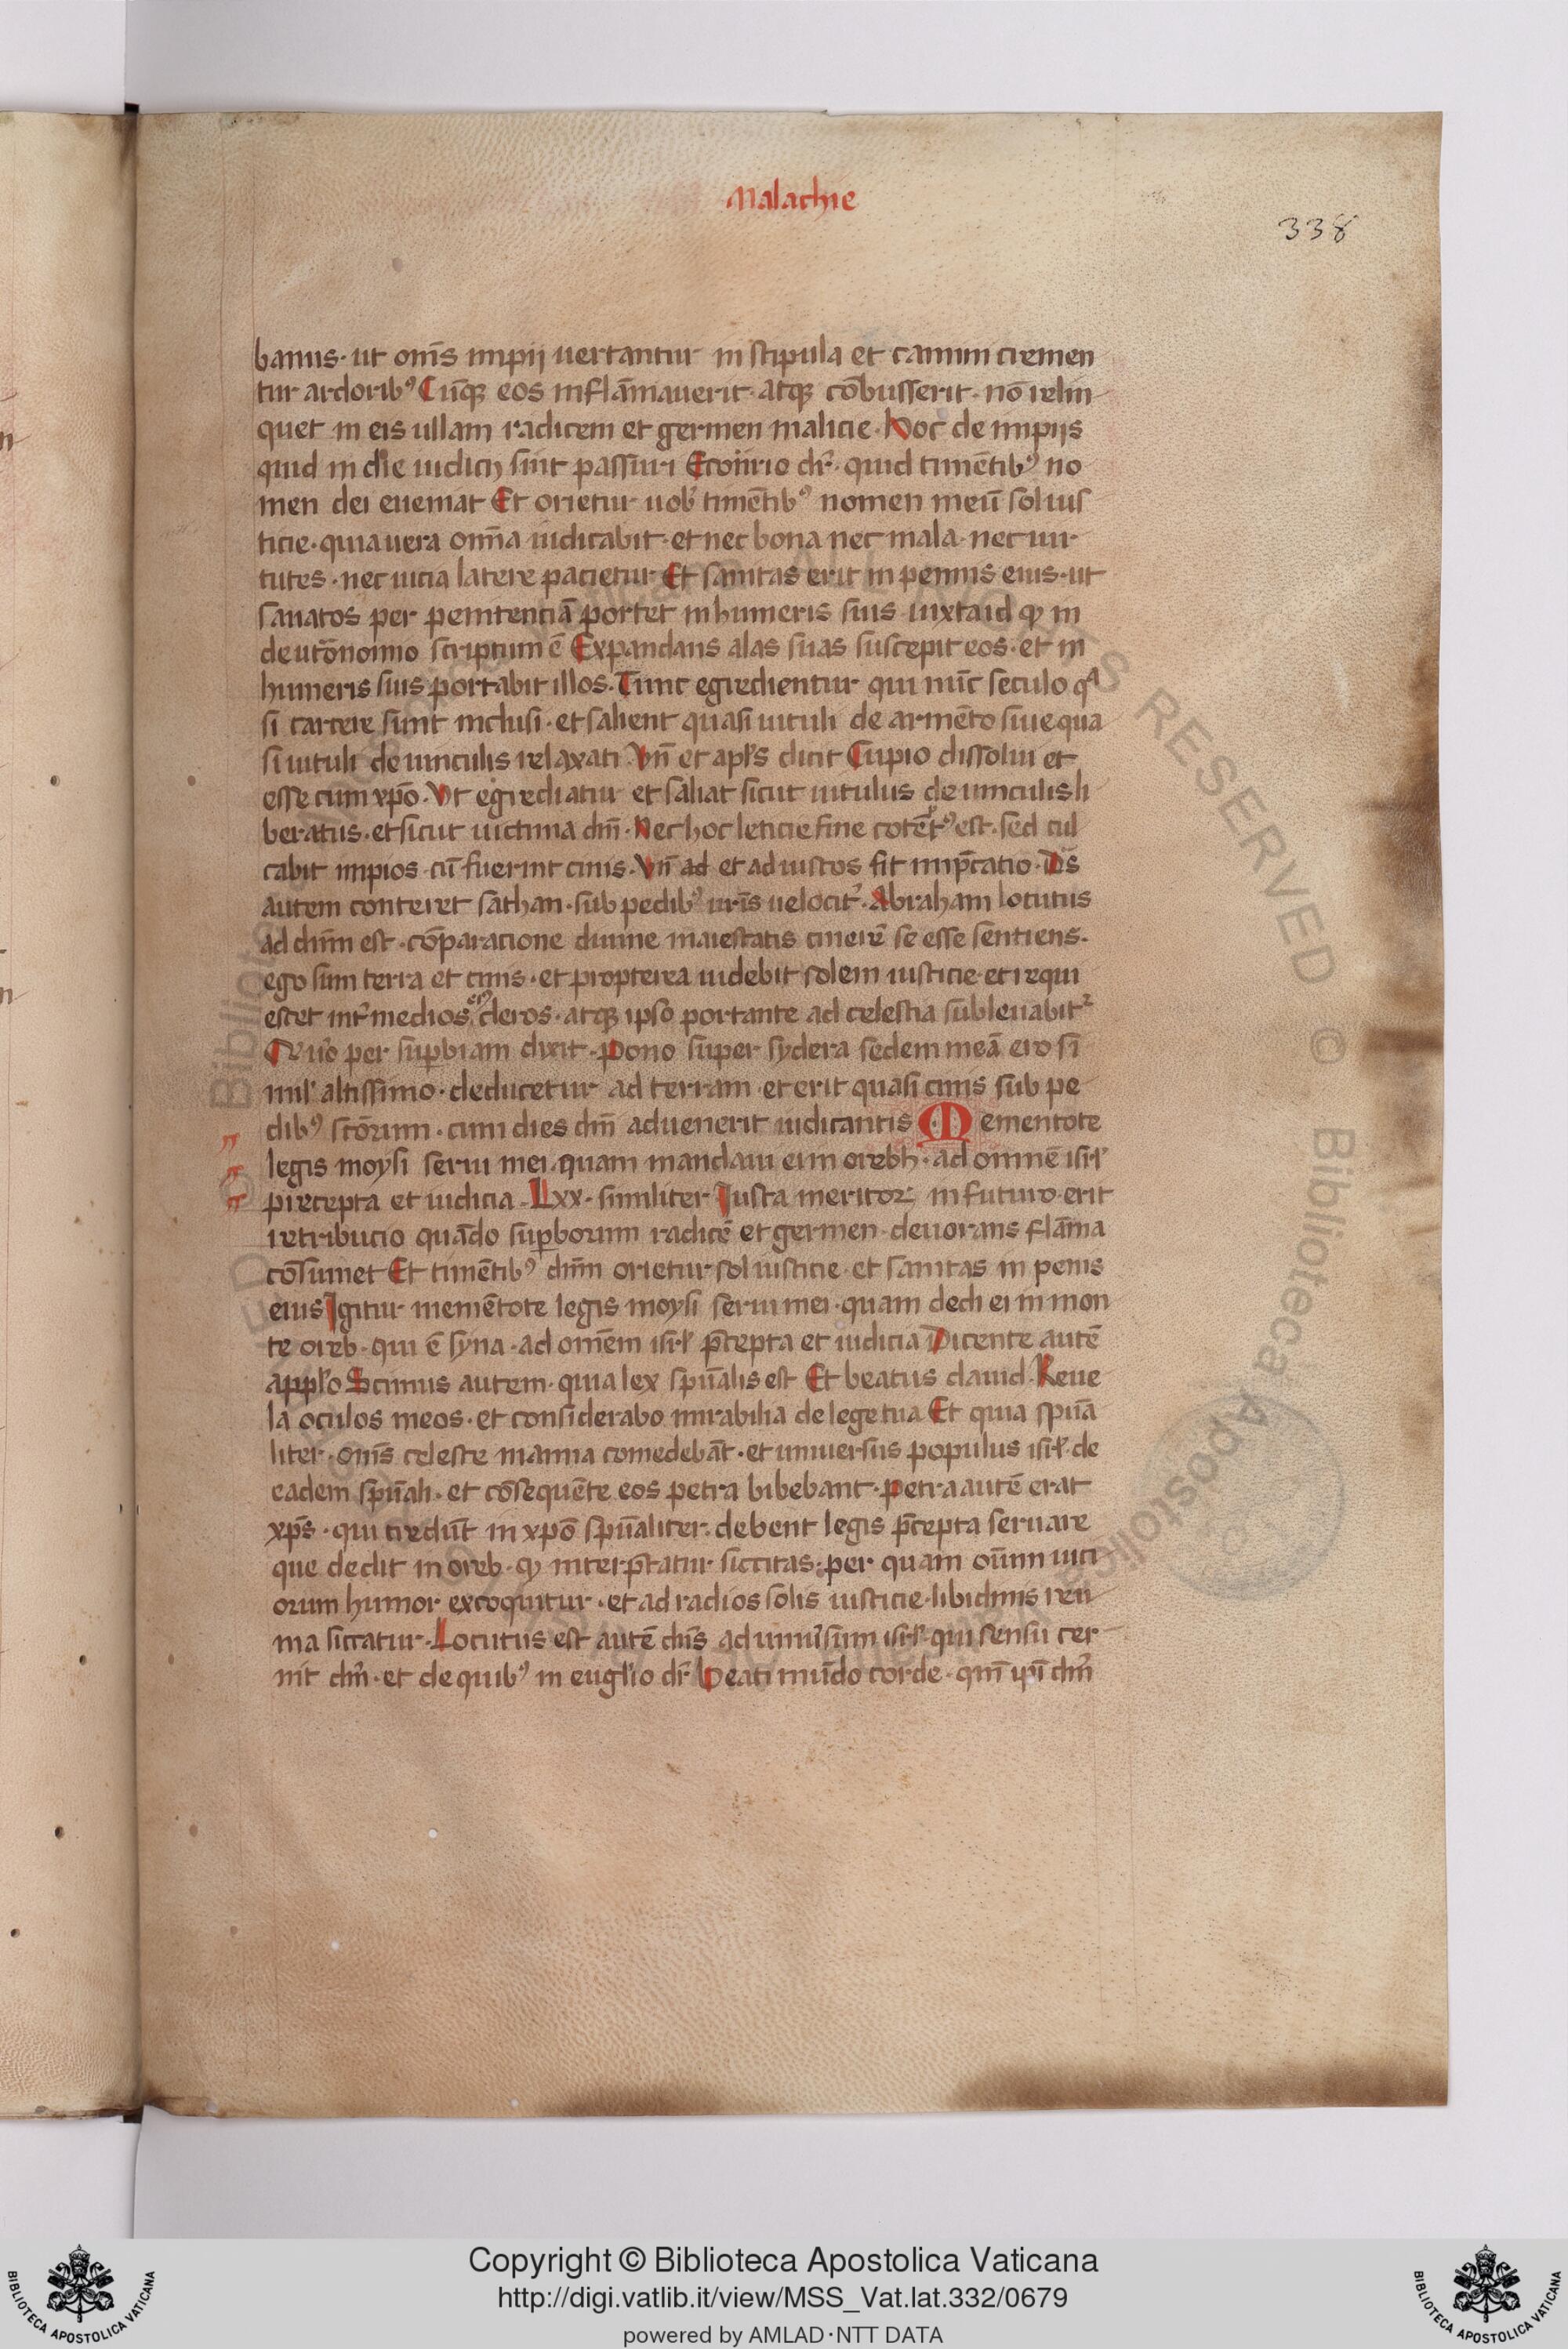 Malachie
338
banus· ut om̄s impij uertantur in stipula et camini cremen
tur ardorib⁹ Cūq; eos inflāmauerit· atq; cōbusserit· nō relin
quet in eis ullam radicem et germen malicie· Hoc de impijs
quid in die iudicij sint passuri Econ̄rio dr̄· quid timētib⁹ no
men dei eueniat Et orietur uob̄ timētib⁹ nomen meū sol ius
ticie· quia uera omīa iudicabit· et nec bona nec mala· nec uir
tutes· nec uicia latere pacietur Et sanitas erit in pennis eius· ut
sanatos per penitenciā portet in humeris suis iuxta id qđ in
deutōnomio scriptum ē Expandans alas suas suscepit eos· et in
humeris suis portabit illos· Tunc egredientur qui nūc seculo qᵃ
si carcere sunt inclusi· et salient quasi uituli de armēto siue qua
si uituli de uinculis relaxati Vn̄ et apl̄s dicit Cupio dissolui et
esse cum xp̄o· Vt egrediatur et saliat sicut uitulus de uinculis li
beratus· et sicut uictima dn̄i· Nec hoc leticie fine cotēt⁹ est· sed cul
cabit impios cū fuerint cinis· Vn̄ ad et ad iustos fit imp̄catio· Ds̄
autem conteret sathan· sub pedib⁹ ur̄is uelocit̄· Abraham locutus
ad dn̄m est· cōparacione diuine maiestatis cinerē se esse sentiens·
ego sum terra et cinis· et propterea uidebit solem iusticie· et requi
escet int̄ medios cleros· atq; ipso portante ad celestia subleuabit²
Qui u̾o per sup̱biam dixit· Pono super sydera sedem meā ero si
mil̄ altissimo· deducetur ad terram et erit quasi cinis sub pe
dib⁹ scōrum· cum dies dn̄i aduenerit iudicantis Mementote
legis moysi serui mei· quam mandaui ei in orebh· ad omnē isrl̄
precepta et iudicia· Lxx· similiter Iusta meritoꝝ in futuro erit
retribucio quādo sup̱borum radicē et germen· deuorans flāma
cōsumet Et timētib⁹ dn̄m orietur sol iusticie· et sanitas in penis
eius Igitur memētote legis moysi serui mei· quam dedi ei in mon
te oreb· qui ē syna· ad omēm isrl̄ p̄cepta et iudicia Dicente autē
appl̄o Scimus autem· quia lex spūalis est Et beatus dauid· Reue
la oculos meos· et considerabo mirabilia de lege tua Et quia spūa
liter· om̄s celeste manna comedebāt· et uniuersus populus isrl̄· de
eadem spūali· et cōsequēte eos petra bibebant· petra autē erat
xp̄s· qui credūt in xp̄o spūaliter· debent legis p̄cepta seruare
que dedit in oreb· qđ interp̄tatur siccitas· per quam oūm uici
orum humor excoquitur· et ad radios solis iusticie· libidinis reu
ma siccatur· Locutus est autē dn̄s ad uniūsum isrl̄· qui sensu cer
nit dn̄m· et de quib⁹ in euglīo dr̄ Beati mūdo corde· qm̄ ip̄i dm̄
Copyright © Biblioteca Apostolica Vaticana
http://digi.vatlib.it/view/MSS_Vat.lat.332/0679
powered by AMLAD·NTT DATA